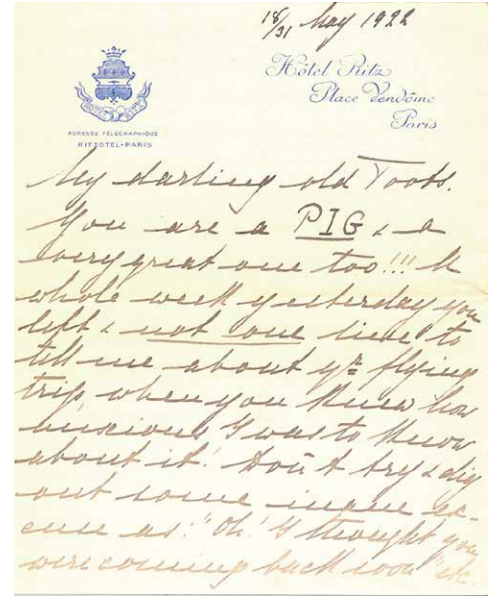 18/31 May 1922
Hôtel Ritz
Place Vendôme
Paris
ADRESSE TÉLÉGRAPHIQUE
RITZOTEL-PARIS
My darling old Toots.
You are a PIG & a
very great one too!!! A
whole week yesterday you
left & not one line to
tell me about yr flying
trip when you knew how
anxious I was to know
about it! Don't try & dig
out some ex-
cuse as: "Oh! I thought you
were coming back soon" etc.